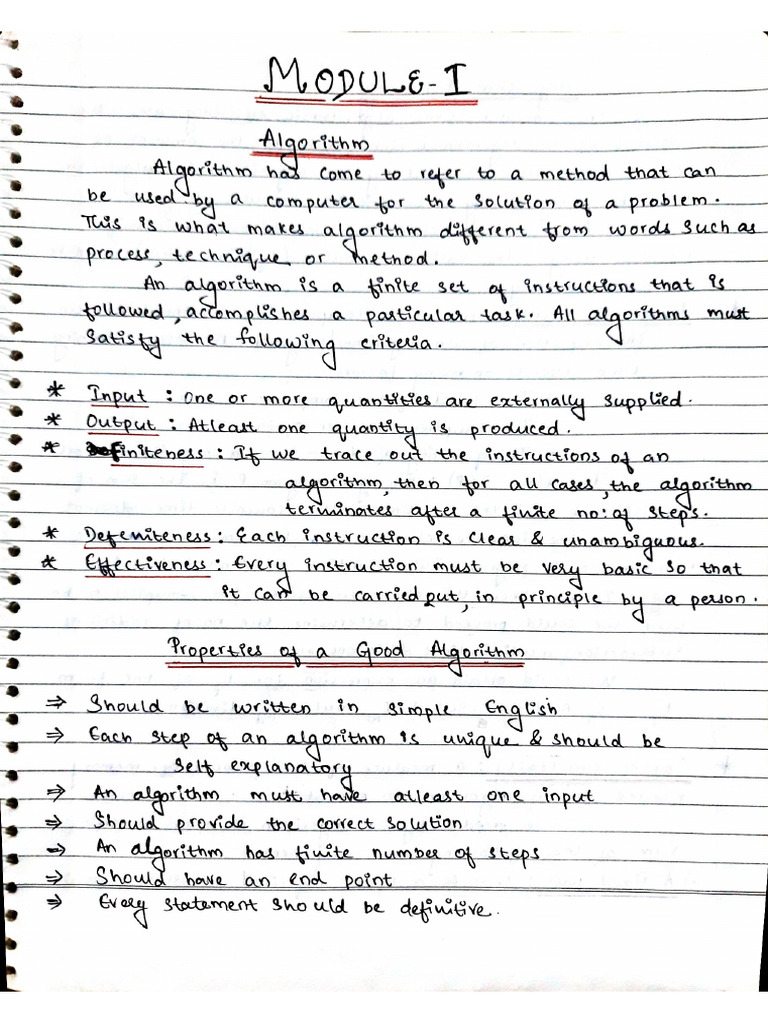 MODULE-I
Algorithm
Algorithm has come to refer to a method that can
be used by a computer for the solution of a problem.
This is what makes algorithm different from words such as
process, technique or method.
An algorithm is a finite set of instructions that is
followed, accomplishes a particular task. All algorithms must
satisfy the following criteria.
* Input : One or more quantities are externally supplied.
* Output : Atleast one quantity is produced.
* finiteness : If we trace out the instructions of an
algorithm, then for all cases, the algorithm
terminates after a finite no: of steps.
* Defeniteness : Each instruction is clear & unambiguous.
* Effectiveness : Every instruction must be very basic so that
it can be carried out, in principle by a person.
Properties of a Good Algorithm
⇒ Should be written in simple English
⇒ Each step of an algorithm is unique & should be
self explanatory
⇒ An algorithm must have atleast one input
⇒ Should provide the correct solution
⇒ An algorithm has finite number of steps
⇒ Should have an end point
⇒ Every statement should be definitive.